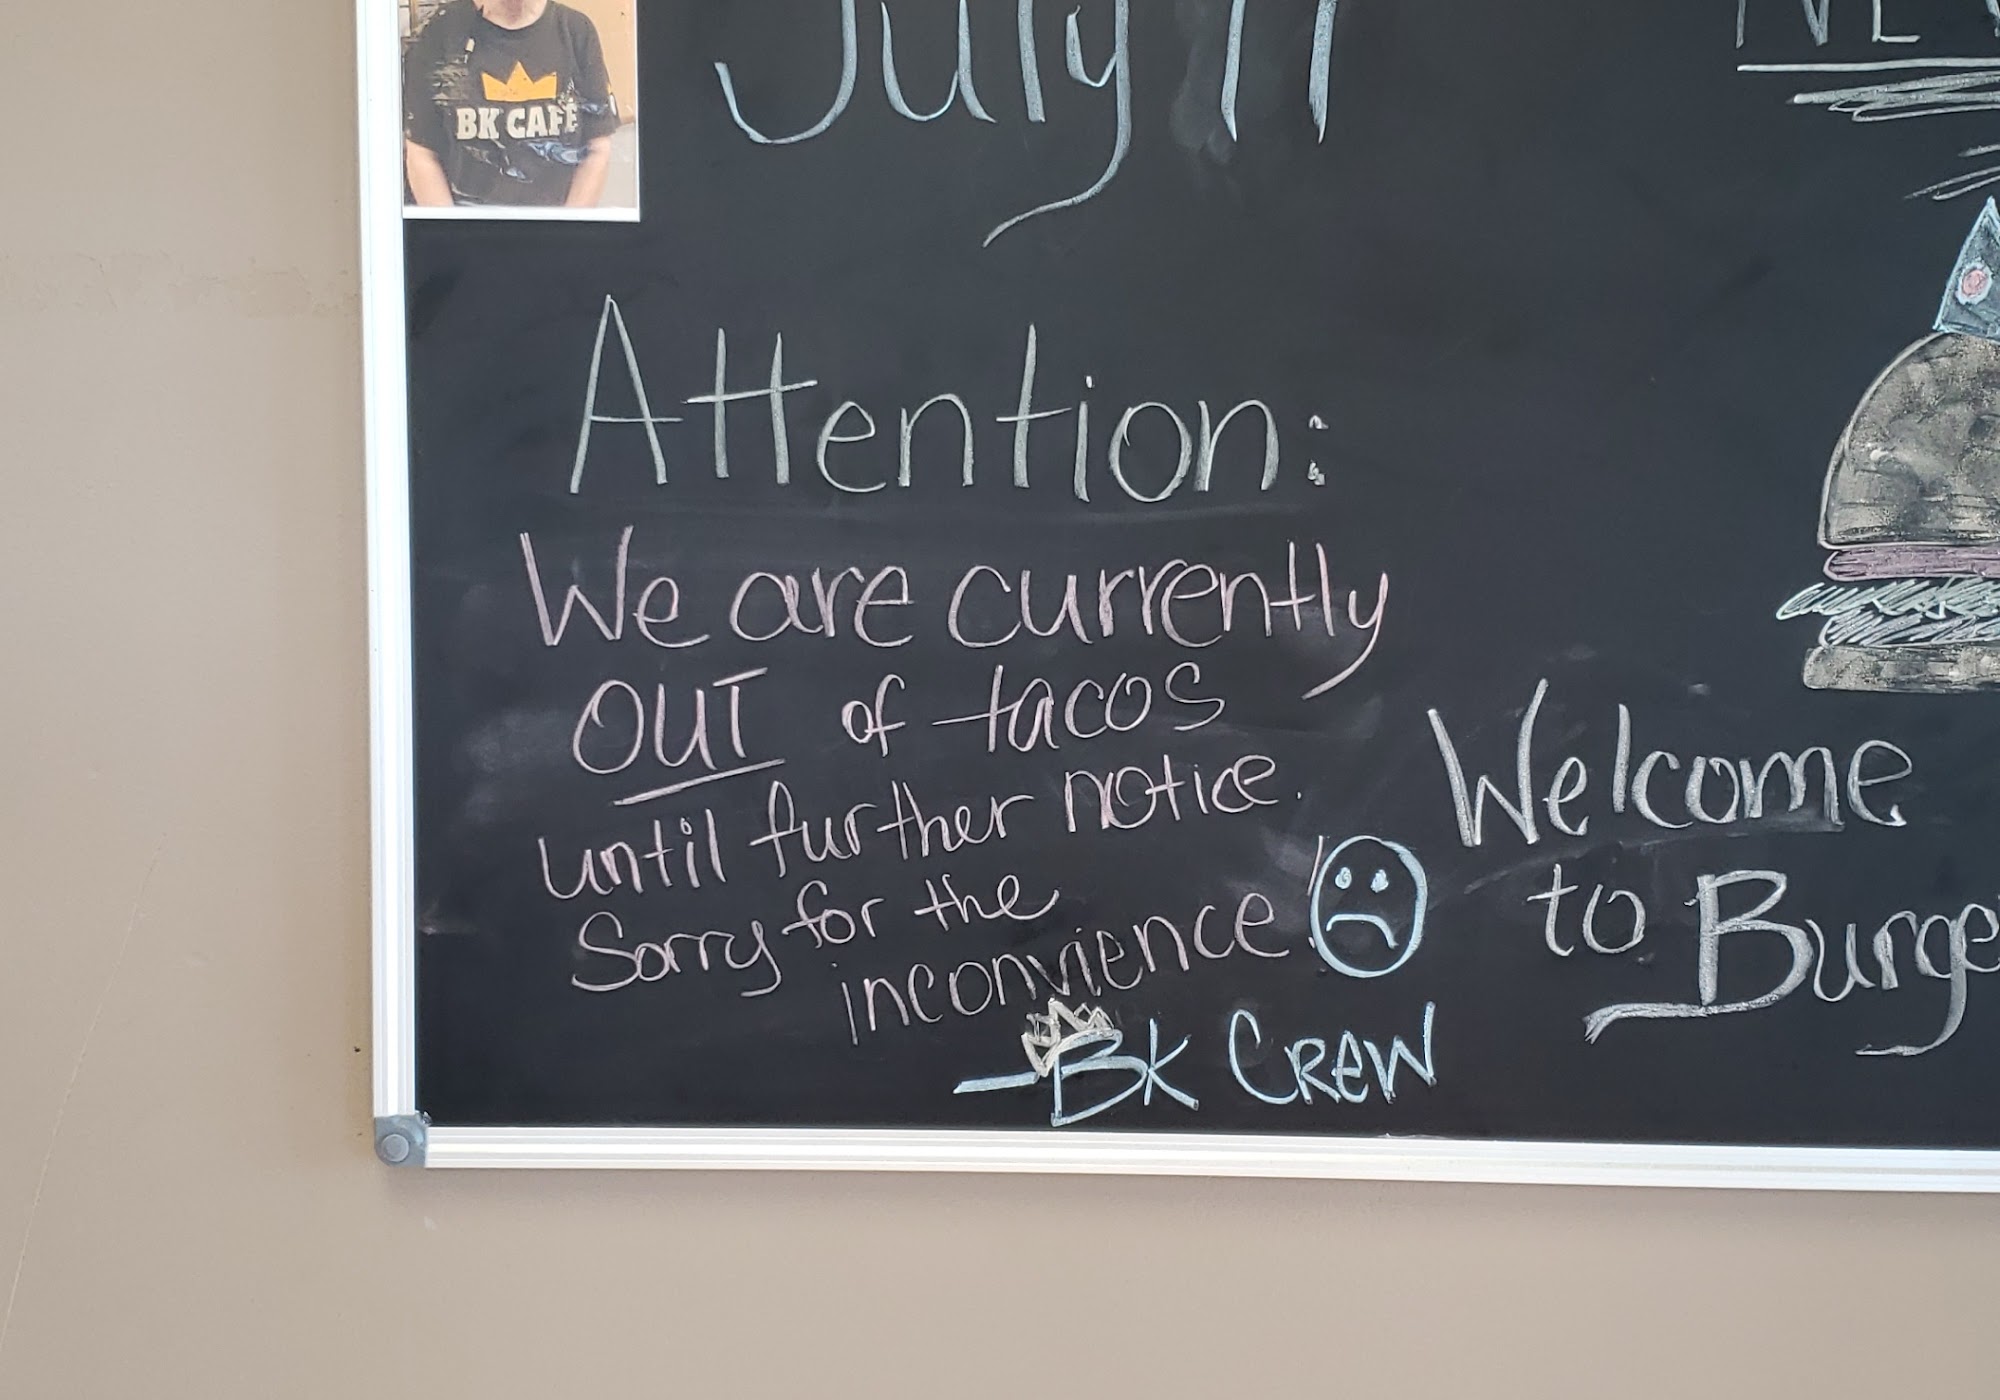 BK CAFE
July 11
Attention:
We are currently
OUT of tacos
until further notice.
Sorry for the
inconvience!
-BK CREW
Welcome
to Burge